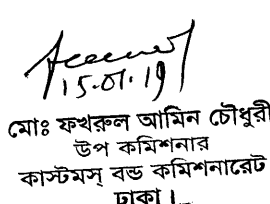 15.01.19
মোঃ ফখরুল আমিন চৌধুরী
উপ কমিশনার
কাস্টমস্ বন্ড কমিশনারেট
ঢাকা।